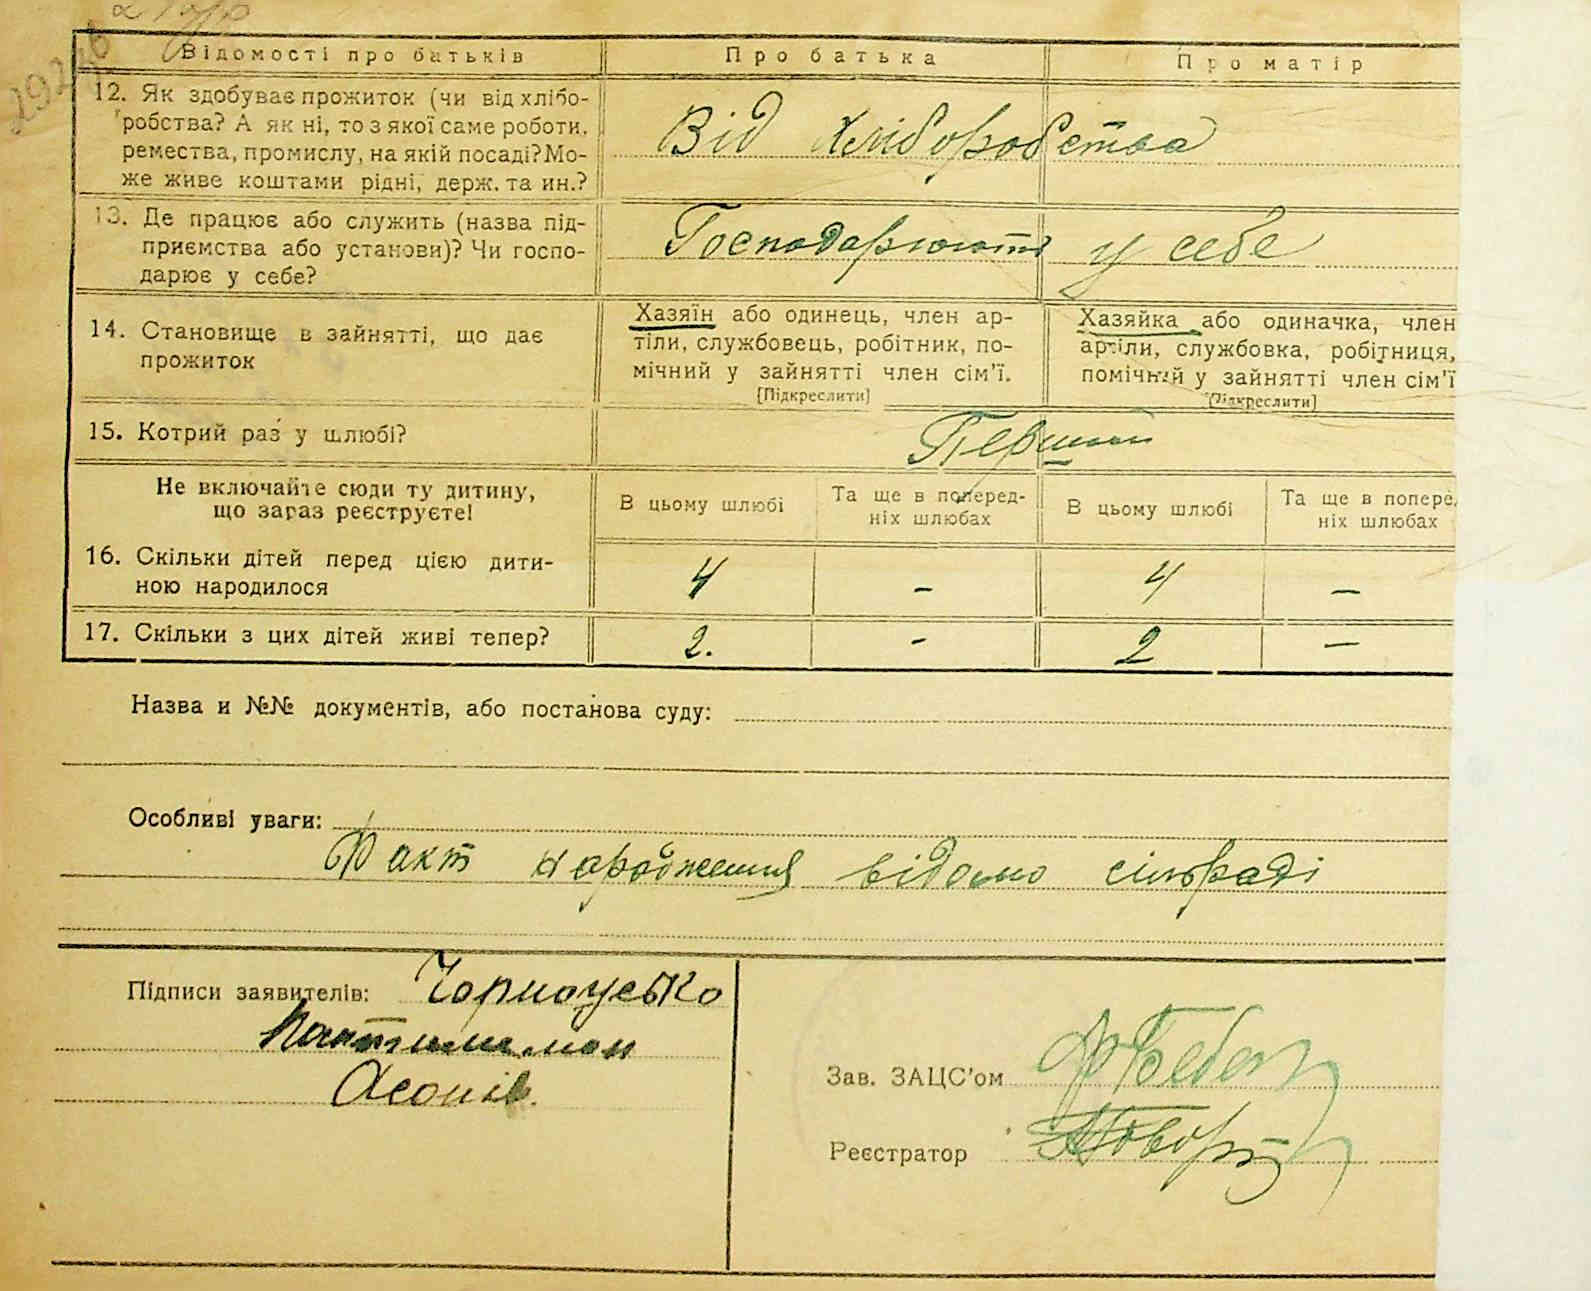 Відомості про батьків Про батька Про матір
12. Як здобуває прожиток (чи від хлібо-
робства? А як ні, то з якої саме роботи,
ремества, промислу, на якій посаді? Мо-
же живе коштами рідні, держ. та ин.?
Від хліборобства
13. Де працює або служить (назва під-
приємства або установи)? Чи госпо-
дарює у себе?
Господарюють у себе
14. Становище в зайнятті, що дає
прожиток
Хазяїн або одинець, член ар-
тіли, службовець, робітник, по-
мічний у зайнятті член сім'ї.
[Підкреслити]
Хазяйка або одиначка, член
артіли, службовка, робітниця,
помічний у зайнятті член сім'ї
[Підкреслити]
15. Котрий раз у шлюбі?
Перший
Не включайте сюди ту дитину,
що зараз реєструєте!
В цьому шлюбі
Та ще в поперед-
ніх шлюбах
В цьому шлюбі
Та ще в попере
ніх шлюбах
16. Скільки дітей перед цією дити-
ною народилося
4 - 4 -
17. Скільки з цих дітей живі тепер?
2. - 2 -
Назва и №№ документів, або постанова суду:
Особливі уваги:
Факт народження відомо сільраді
Підписи заявителів: Чорноусько
Пантилимон
Зав. ЗАЦС'ом
Реєстратор